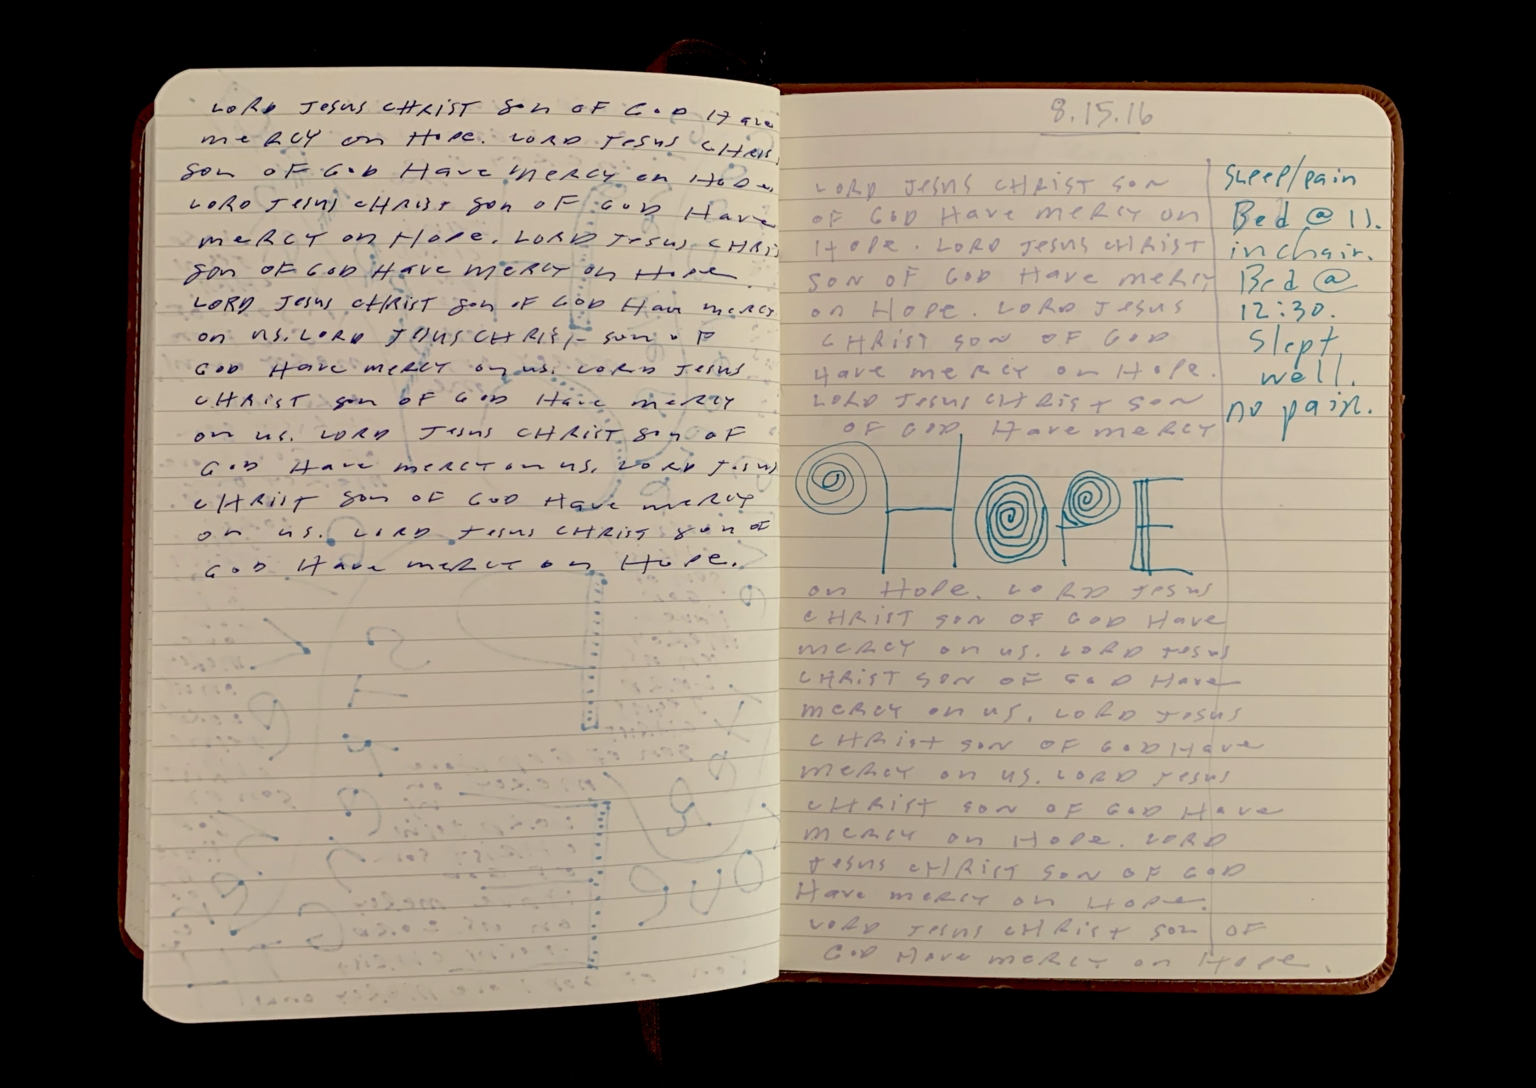 LORD JESUS CHRIST SON OF GOD Have
meRCY on Hope. LORD JESUS CHRIS
SON OF GOD Have MERCY on Hope
LORD JESUS CHRIST SON OF GOD Have
meRCY on Hope. LORD JESUS CHRIS
SON OF GOD Have meRCY on Hope
LORD JESUS CHRIST SON OF GOD Have meRCY
on us. LORD JESUS CHRIST SON OF
GOD Have meRCY on us. LORD JESUS
CHRIST SON OF GOD Have meRCY
on us. LORD JESUS CHRIST SON OF
GOD Have meRCY on us. LORD JESUS
CHRIST SON OF GOD Have meRCY
on us. LORD JESUS CHRIST SON OF
GOD Have meRCY on Hope.
8.15.16
LORD JESUS CHRIST SON
OF GOD Have meRCY on
Hope. LORD JESUS CHRIST
SON OF GOD Have meRCY
on Hope. LORD JESUS
CHRIST SON OF GOD
Have meRCY on Hope.
LORD JESUS CHRIST SON
OF GOD Have meRCY
HOPE
on Hope. LORD JESUS
CHRIST SON OF GOD Have
meRCY on us. LORD JESUS
CHRIST SON OF GOD Have
meRCY on us. LORD JESUS
CHRIST SON OF GOD Have
meRCY on us. LORD JESUS
CHRIST SON OF GOD Have
meRCY on Hope. LORD
JESUS CHRIST SON OF GOD
Have meRCY on Hope.
LORD JESUS CHRIST SON OF
GOD Have meRCY on Hope.
Sleep/pain
Bed @ 11.
in chair.
Bed @
12:30.
Slept
well.
no pain.